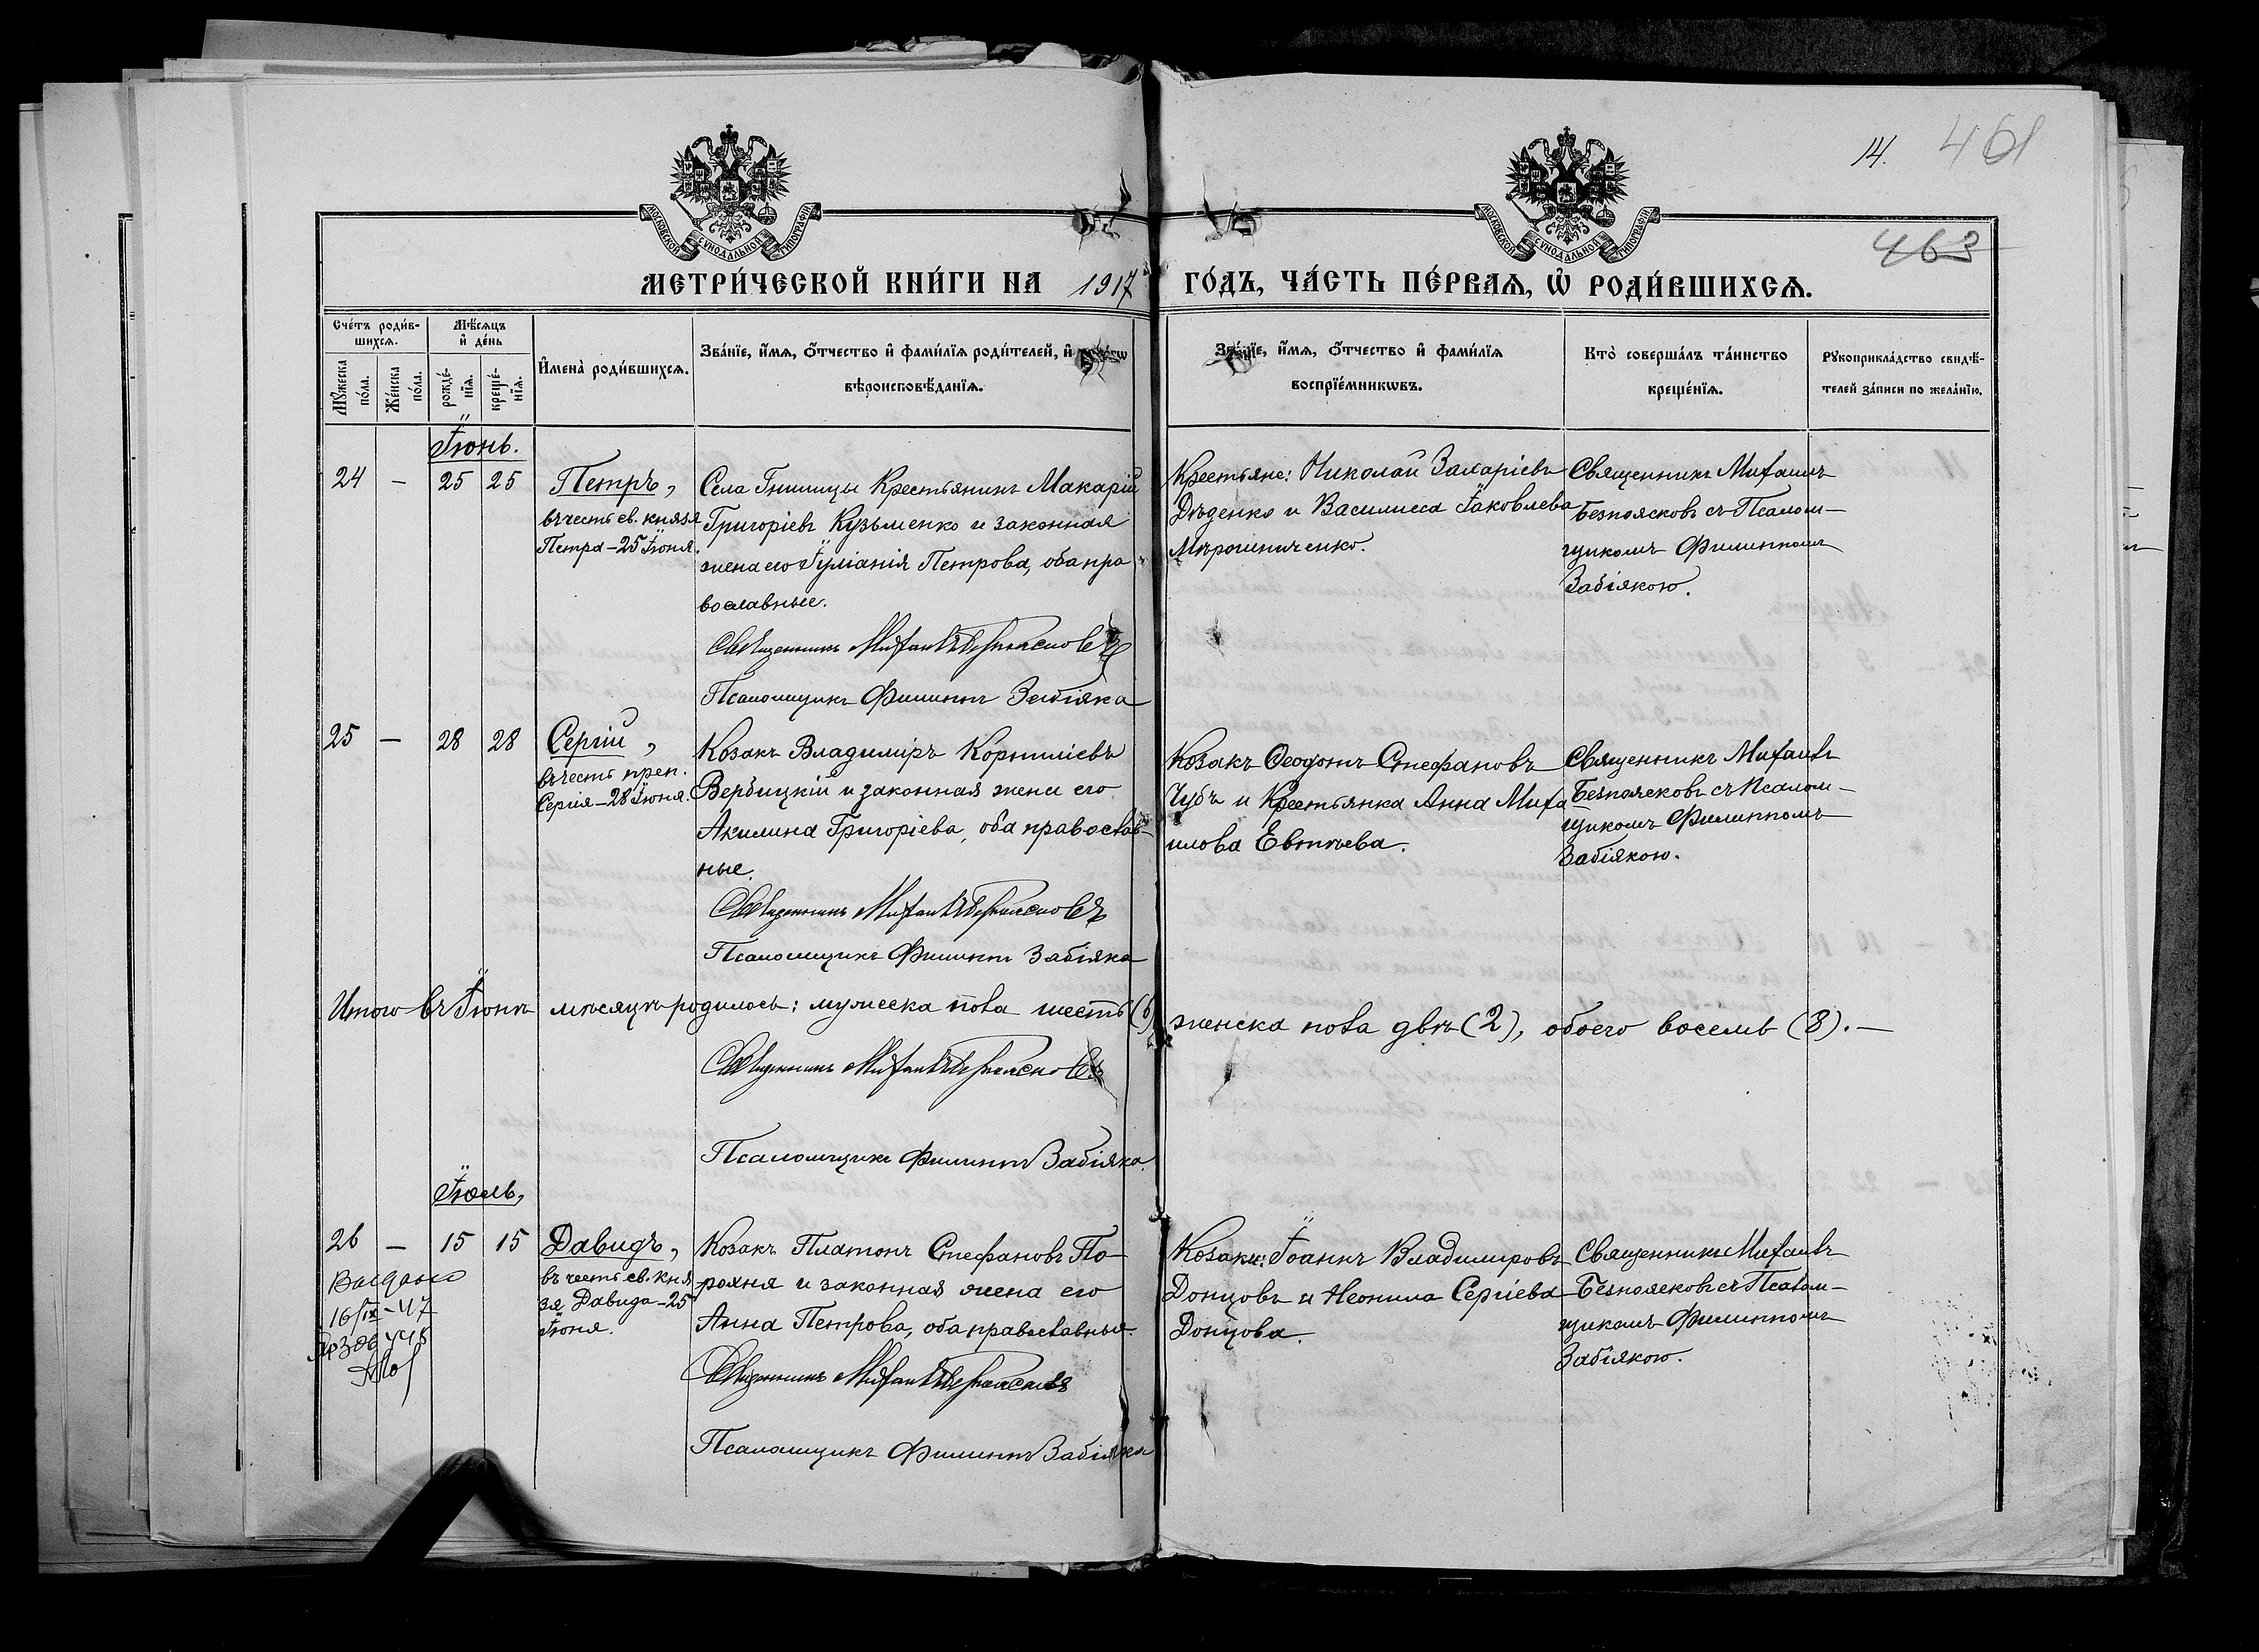 14.
461
463
МОСКОВСКОЙ СУНОДАЛЬНОЙ ТИПОГРАФІИ
МОСКОВСКОЙ СУНОДАЛЬНОЙ ТИПОГРАФІИ
МЕТРИ́ЧЕСКОЙ КНИ́ГИ НА 1917
ГО́ДЪ, ЧА́СТЬ ПЕ́РВАѦ, Ѡ РОДИ́ВШИХСѦ.
Сче́тъ роди́в-
шихсѧ.
Мѣ́сѧцъ
и де́нь
Мꙋ́жеска
по́ла.
Же́нска
по́ла.
рожде́-
нїѧ.
креще́-
нїѧ.
И҆мена̀ роди́вшихсѧ.
Зва́нїе, и҆́мѧ, ѻ҆́тчество и҆ фами́лїѧ роди́телей, и҆
вѣроисповѣ́данїѧ.
Зва́нїе, и҆́мѧ, ѻ҆́тчество и҆ фами́лїѧ
воспрїе́мникѡвъ.
Кто̀ соверша́лъ та́инство
креще́нїѧ.
Рꙋкоприкла́дство свидѣ́-
телей за́писи по жела́нїю.
Іюнь.
24 — 25 25
Петръ,
въ честь св. князя
Петра – 25 Іюня.
Села Гнилицы Крестьянинъ Макарій
Григоріевъ Кузьменко и законная
жена его Іуліанія Петрова, оба пра
вославные.
Священникъ Михаилъ Безпоясковъ
Псаломщикъ Филиппъ Забіяка
Крестьяне: Николай Захаріевъ
Дѣденко и Василисса Іаковлева
Мѣрошниченко.
Священникъ Михаилъ
Безпоясковъ съ Псалом-
щикомъ Филиппомъ
Забіякою.
25 — 28 28
Сергій,
въ честь преп.
Сергія – 28 Іюня.
Козакъ Владиміръ Корниліевъ
Вербицкій и законная жена его
Акилина Григоріева, оба православ-
ные.
Священникъ Михаилъ Безпоясковъ
Псаломщикъ Филиппъ Забіяка
Козакъ Ѳеодотъ Стефановъ
Чубъ и Крестьянка Анна Миха
илова Евтѣева.
Священникъ Михаилъ
Безпоясковъ съ Псалом-
щикомъ Филиппомъ
Забіякою.
Итого въ Іюнѣ мѣсяцѣ родилось: мужеска пола шесть (6)
женска пола двѣ (2), обоего восемь (8). —
Священникъ Михаилъ Безпоясковъ
Псаломщикъ Филиппъ Забіяка.
Іюль,
26 — 15 15
Давидъ,
въ честь св. кня
зя Давида – 25
Іюня.
Козакъ Платонъ Стефановъ По-
рохня и законная жена его
Анна Петрова, оба православные.
Священникъ Михаилъ Безпоясковъ
Псаломщикъ Филиппъ Забіяка
Козаки: Іоаннъ Владимировъ
Донцовъ и Неонила Сергіева
Донцова.
Священникъ Михаилъ
Безпоясковъ съ Псалом-
щикомъ Филиппомъ
Забіякою.
Выдано
16/IX – 47